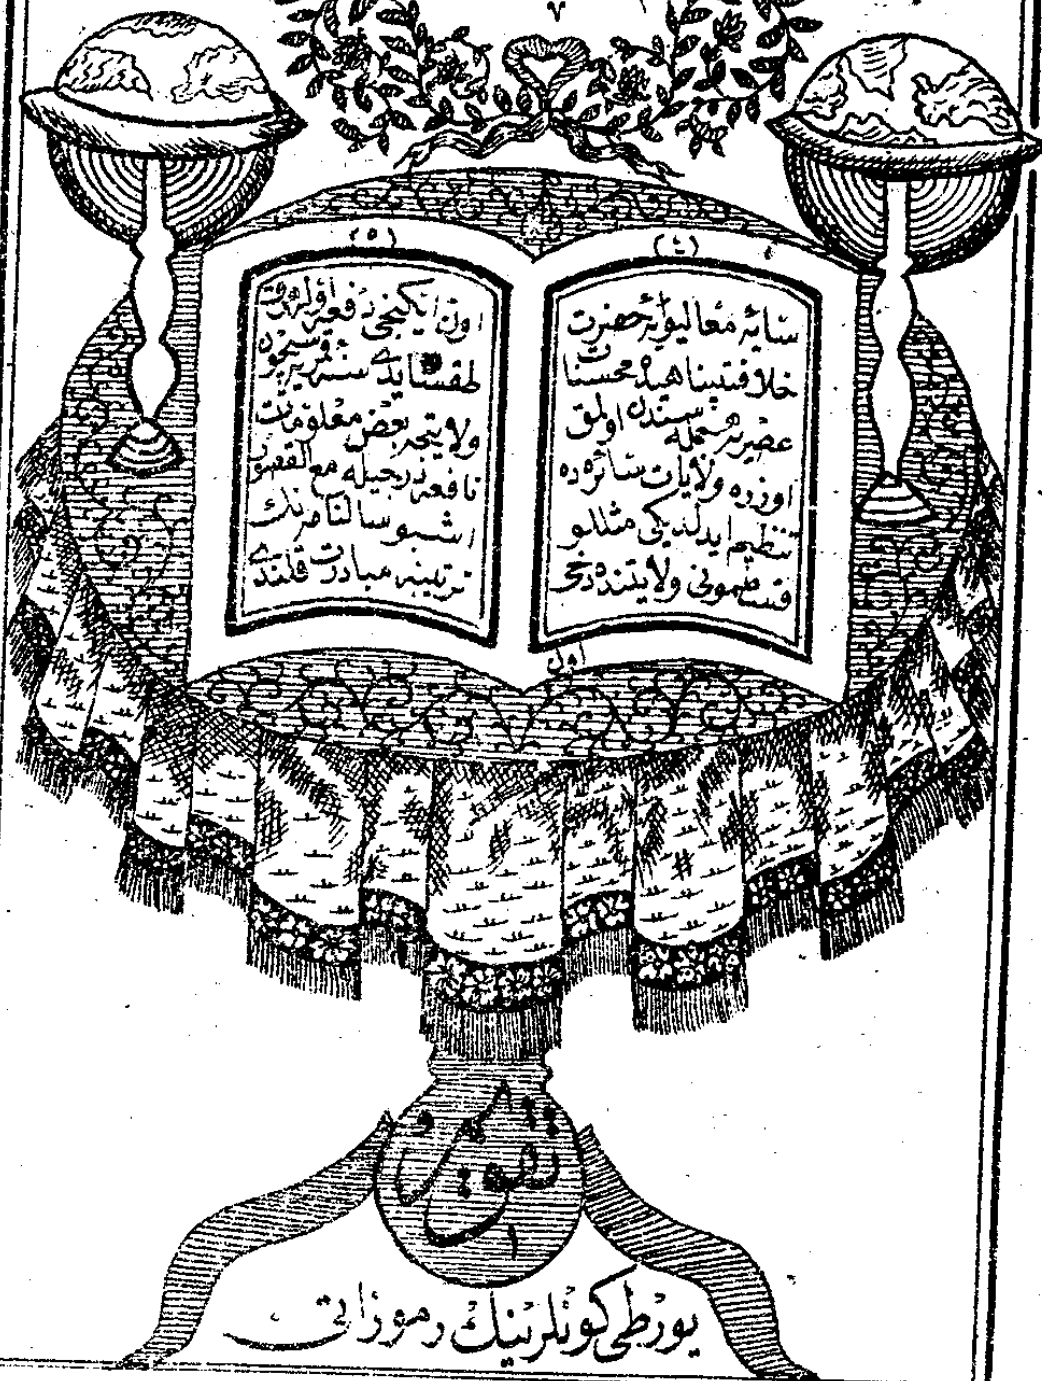 ٧
(٤)
سایهٔ معالیوایهٔ حضرت
خلافتپناهیده محسنات
عصریه جمله سندن اولمق
اوزره ولایات سائره ده
تنظیم ایدلدیکی مثللو
قسطمونی ولایتنده دخی
اون
(٥)
اون ایکنجی دفعه اوله رق
طقسان یدی سنهٔ
ولایتجه بعض معلومات
نافعه درجیله مع القصور
اشبو سالنامه نك
ترتیبنه مبادرت قلندی
یورطی کونلرینك رموزاتی